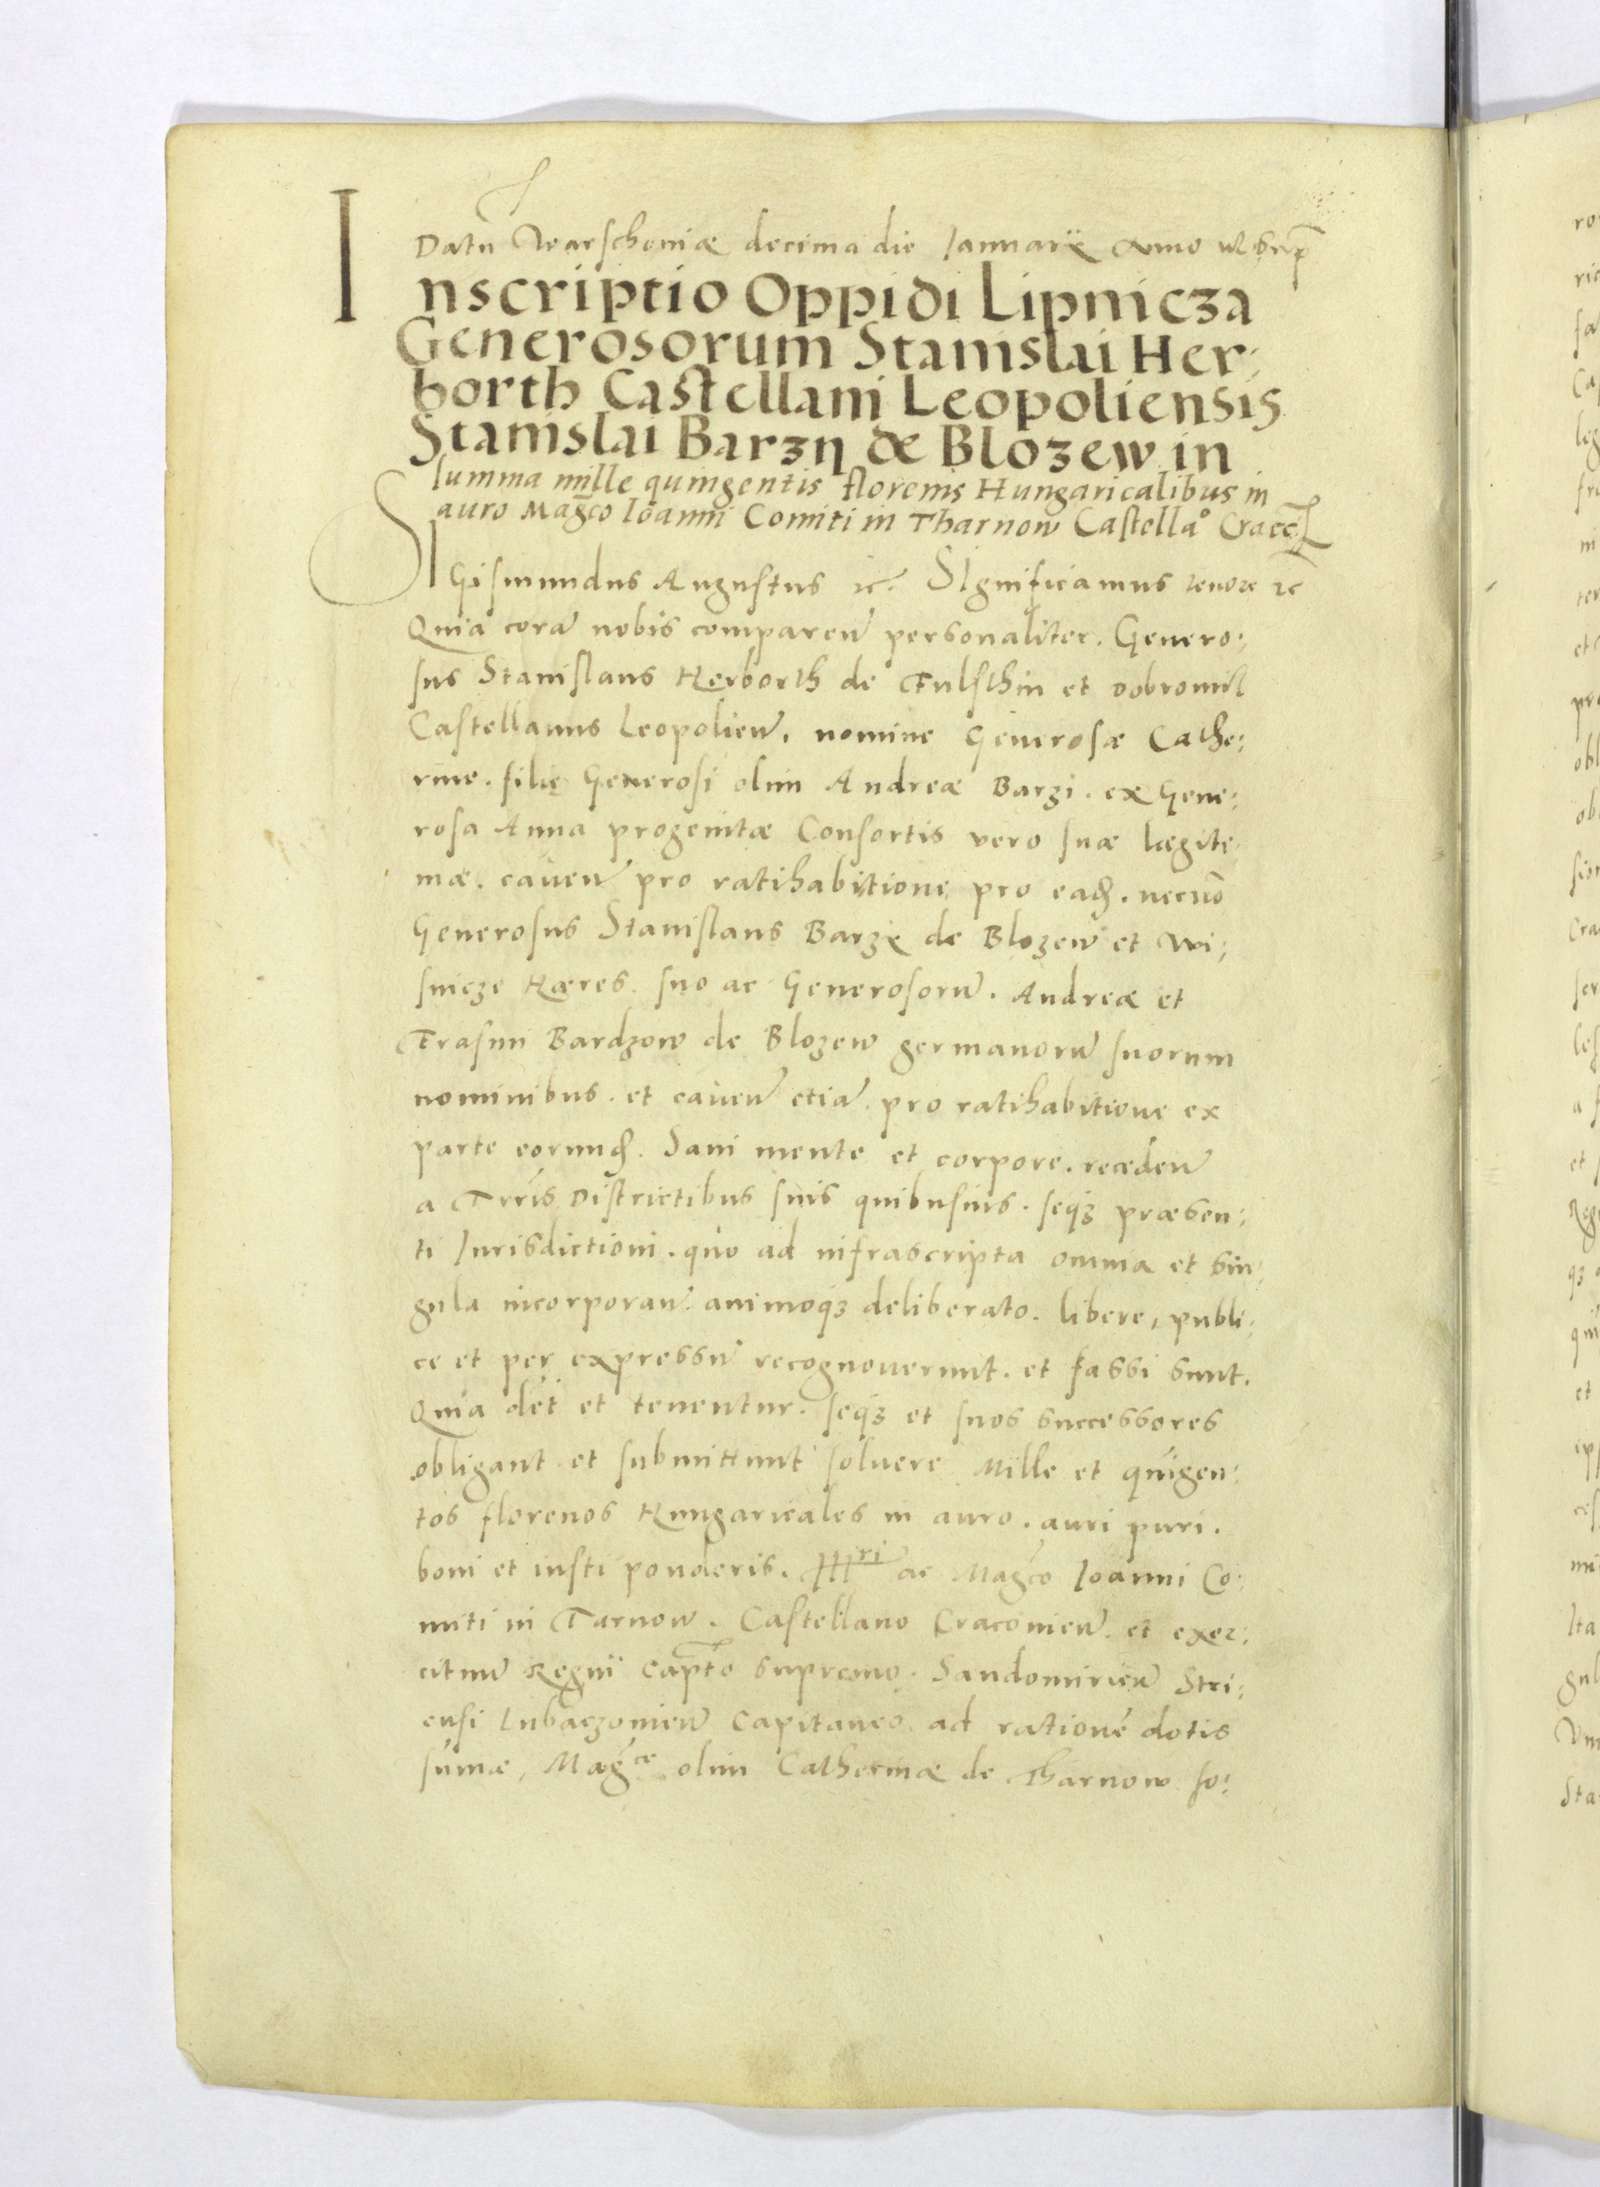 Datu Warschoniæ decima die Januarii Anno ut supra
Inscriptio Oppidi Lipnicza
Generosorum Stanislai Her:
borth Castellani Leopoliensis
Stanislai Barzy de Blozew in
summa mille quingentis florenis Hungaricalibus in
auro Magco Ioanni Comiti in Tharnow Castellao Cracc
SIGismundus Augustus ec. SIgnificamus tenore ec
Quia corā nobis comparen̄ personaliter. Genero:
sus Stanislaus Herborth de Fulsthin et Dobromil
Castellanus Leopolien̄, nomine Generosæ Cathe:
rine. filię Generosi olim Andreæ Barzi. ex Gene:
rosa Anna progenitæ Consortis vero suæ lægite
mæ. caven̄ pro ratihabitione pro eadē. necnō
Generosus Stanislaus Barzy de Blozew et Wi:
snicze Hæres. suo ac Generosorū. Andreæ et
Erasmi Bardzow de Blozew germanorū suorum
nominibus. et caven̄ etiā pro ratihabitione ex
parte eorundē. Sani mente et corpore. receden̄
a Trris Districtibus suis quibusvis. seqз præsen:
ti Jurisdictioni. quo ad infrascripta omnia et sin:
gula incorporan̄. animoqз deliberato. libere, publi:
ce et per expressū recognoverunt. et fassi sunt.
Quia dēt et tenentur. seqз et suos successores
obligant et submittunt solvere Mille et quīgen:
tos florenos Hungaricales in auro. auri puri.
boni et iusti ponderis. Illri ac Magco Ioanni Co:
miti in Tarnow. Castellano Cracovien̄. et exer:
cituū Regni Captō supremo. Sandomirien̄ Stri:
ensi Lubaczovien̄ Capitaneo. ad rationē dotis
sumæ, Magcæ olim Catherinæ de Tharnow so: